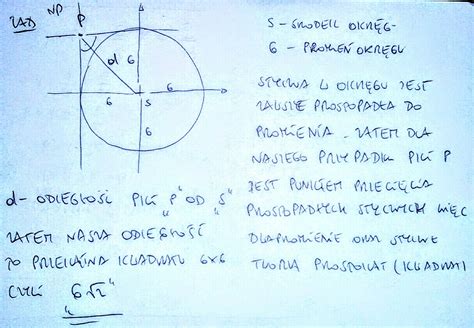 ZAD
NP
P
d
6
6
6
S
6
S - ŚRODEK OKRĘG-
6 - PROMIEŃ OKRĘGU
STYCZNA W OKRĘGU JEST
ZAWSZE PROSTOPADŁA DO
PROMIENIA. ZATEM DLA
NASZEGO PRZYPADKU PKT P
JEST PUNKTEM PRZECIĘCIA
PROSTOPADŁYCH STYCZNYCH WIĘC
DWA PROMIENIE ORAZ STYCZNE
TWORZĄ PROSTOKĄT (I KWADRAT)
d - ODLEGŁOŚĆ PKT "P" OD "S"
ZATEM NASZA ODLEGŁOŚĆ
TO PRZEKĄTNA KWADRATU 6x6
CZYLI 6√2"